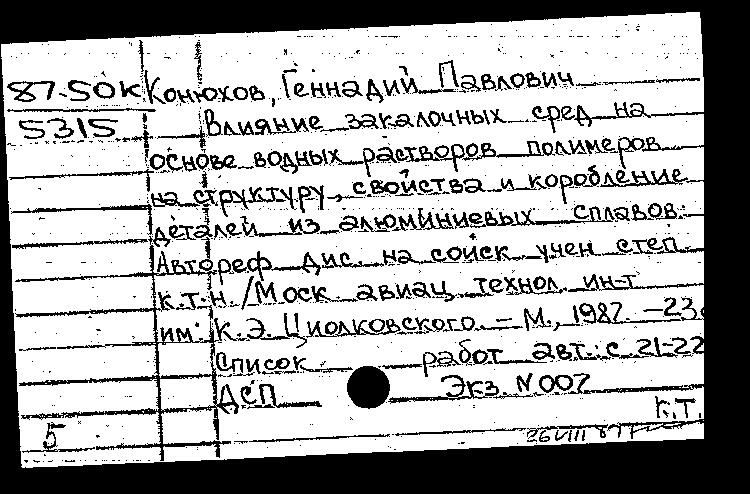 87-50К Конюхов, Геннадий Павлович
5315 Влияние закалочных сред на
основе водных растворов полимеров
на структуру, свойства и коробление
деталей из алюминиевых сплавов:
Автореф. дис. на соиск учен степ.
к.т.н. /Моск авиац технол. ин-т
им. К.Э. Циолковского. – М., 1987. – 23с
Список работ авт.: с 21-22
ДСП Экз. N 007
К.Т.
5 26 VIII 87